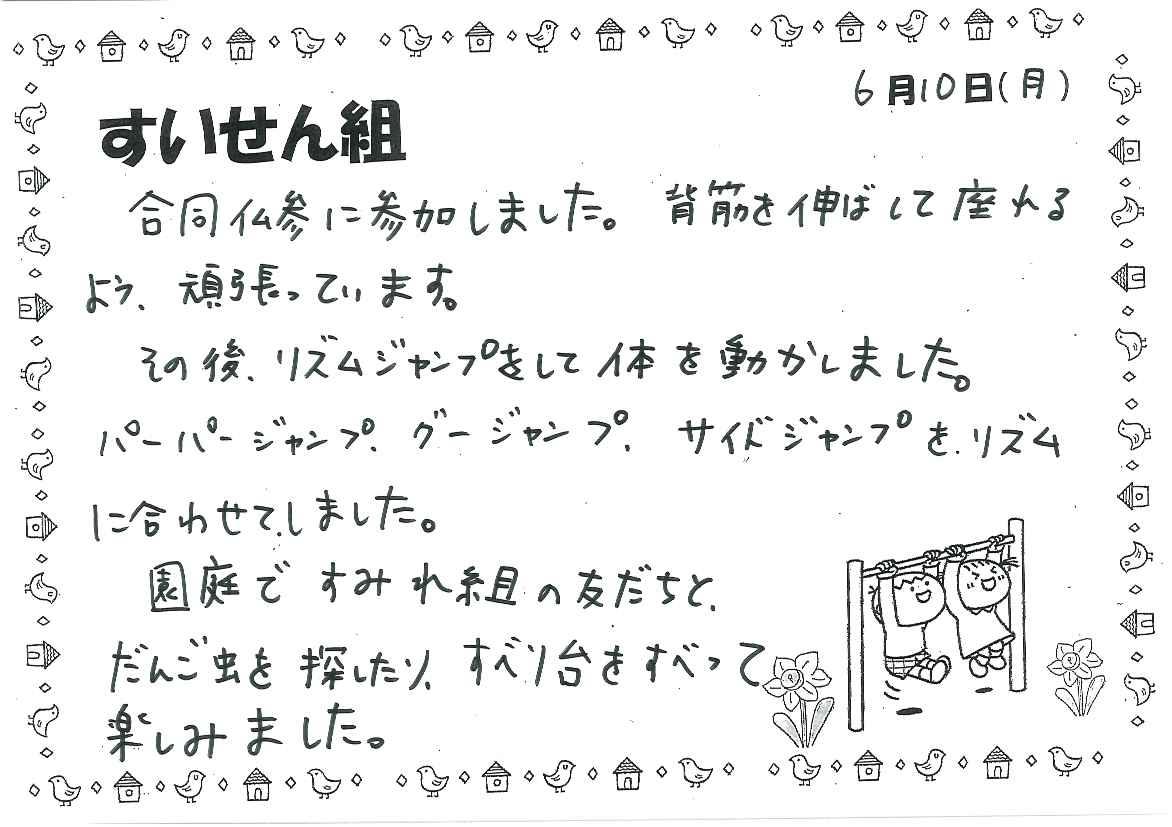 6月10日(月)
すいせん組
合同仏参に参加しました。背筋を伸ばして座れる
よう、頑張っています。
その後、リズムジャンプをして体を動かしました。
パーパージャンプ、グージャンプ、サイドジャンプを、リズム
に合わせて、しました。
園庭ですみれ組の友だちと、
だんご虫を探したり、すべり台をすべって
楽しみました。